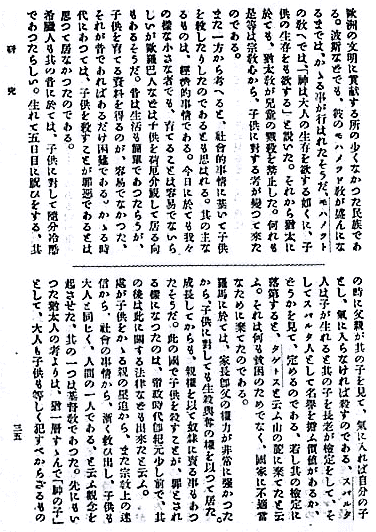 歐洲の文明に貢獻する所の少くなかつた民族であ
る。波斯などでも、彼のモハメツド敎が盛んにな
るまでは、かゝる事が行はれたそうだ。モハメツド
の敎へでは、「神は大人の生存を欲する如くに、子
供の生存をも欲する」と說いた。それから猶太に
於ても、猶太敎が兒童の慘殺を禁止した。何れも
是等は宗敎心から、子供に對する者が變つて來た
のである。
また一方から考へると、社會的事情に基いて子供
を殺したりしたのであるとも思はれる。其の主な
るものは、經濟的事情である。今日に於ても我々
の樣な小さな者でも、育てることは容易でないら
しいが歐羅巴人などは子供を荷厄介視して居る向
もあるそうだ。昔は生活も簡單であつたらうが、
子供を育てる資料を得るのが、容易でなかつた。
それが昔であればあるだけ困難である。かゝる時
代にあつては、子供を殺すことが罪惡であるとは
思つて居なかつたのである。
希臘人も其の昔に於ては、子供に對して隨分冷酷
であつたらしい。生れて五日目に祝ひをする、其
の時に父親が其の子を見て、氣に入れば自分の子
とし、氣に入らなければ殺すのである。スパルタ
人は子が生れると其の子を長老が檢定をして、そ
してスパルタ人として名譽を擔ふ價値があるか、
どうかを見て、定めるのである。若し其の檢定に
落第すると、タゲトスと云ふ山の麓に棄てたと云
ふ。それは何も貧困のためでなく、國家に不適當
なために棄てたのである。
羅馬に於ては、家長卽父の權力が非常に强かつた。
から、子供に對しても生殺與奪の權を以つて居た。
成長してからも、親權を以て奴隸に賣る事もあつ
たそうだ。此の國で子供を殺すことが、罪とされ
る樣になつたのは、帝政時代卽紀元少し前で、其
の後は此に關する法律なども出來たと云ふ。
處が子供をかゝる親の壓迫から、また宗敎上の迷
信から、社會の事情から、漸く救ひ出し、子供も
大人と同じく、人間の一人である、と云ふ觀念を
起させた、其の一つは基督敎であつた。先にもい
つた猶太人の考よりは、猶一層すゝんで「神の子」
として、大人も子供も等しく犯すべからざるもの
硏究
三五